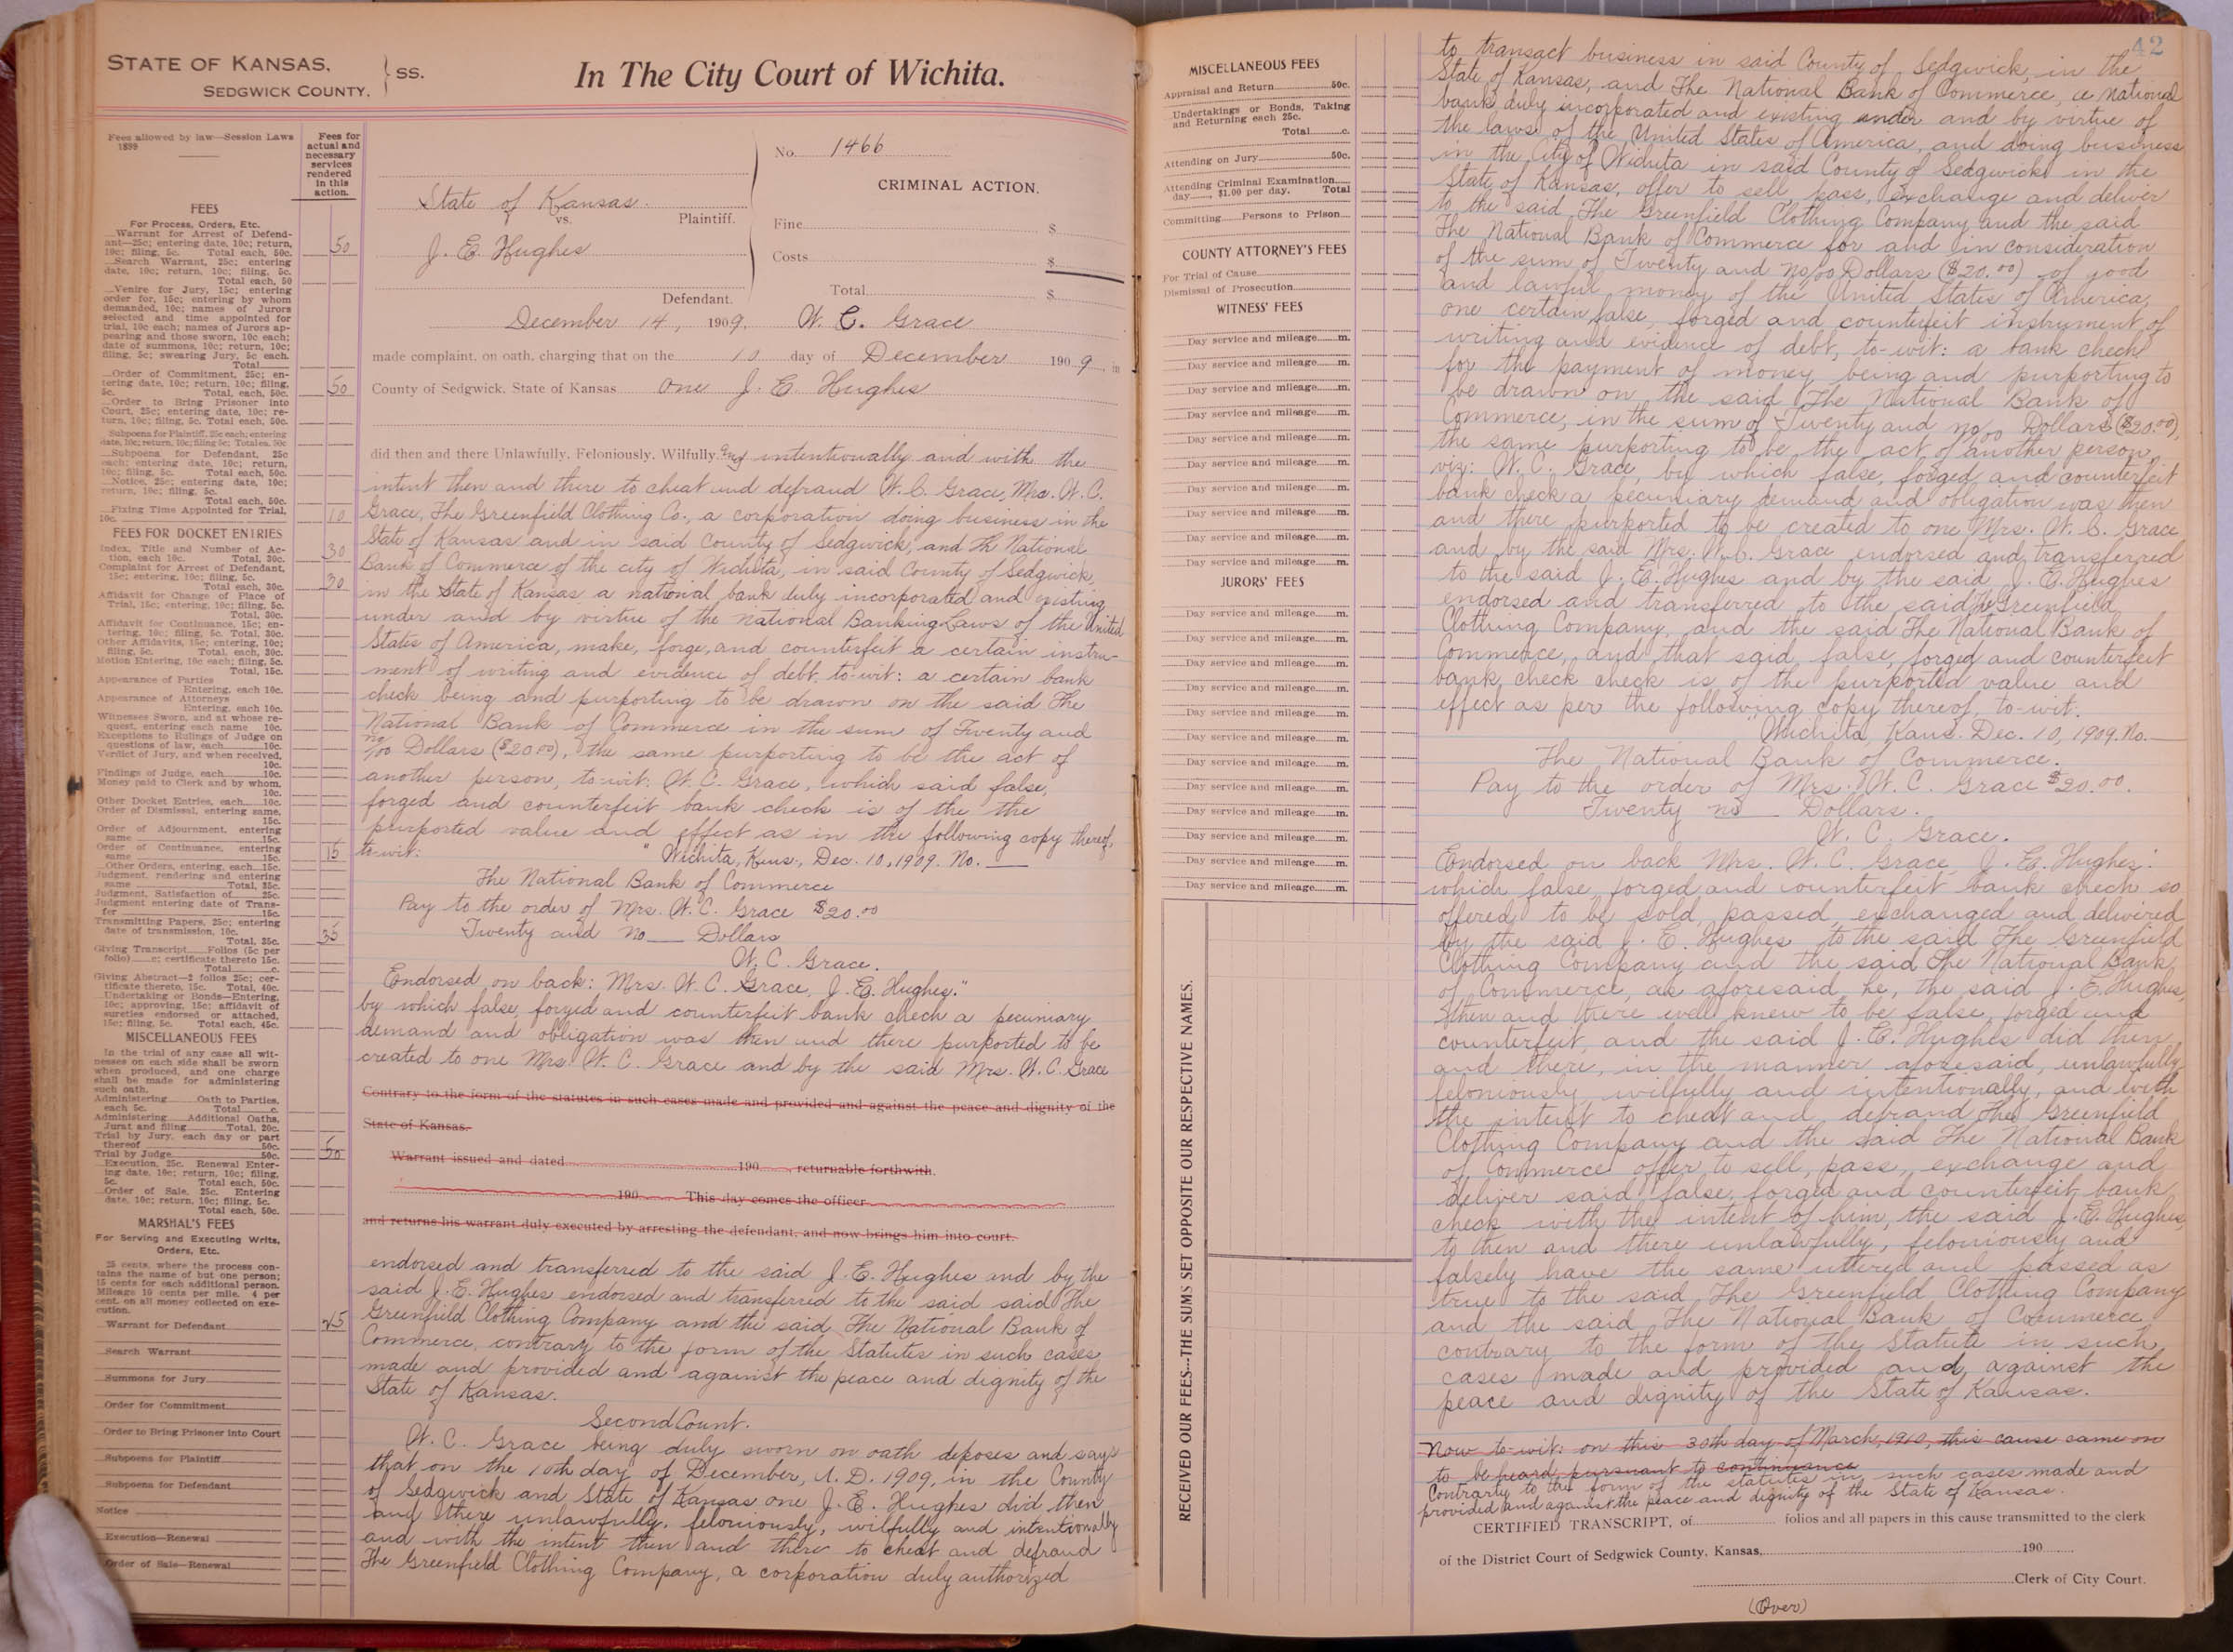 STATE OF KANSAS,
SEDGWICK COUNTY.
SS.
In The City Court of Wichita.
Fees allowed by law—Session Laws
1899
Fees for
actual and
necessary
services
rendered
in this
action.
FEES
For Process, Orders, Etc.
Warrant for Arrest of Defend-
ant—25c; entering date, 10c; return,
10c; filing, 5c. Total each, 50c.
50
Search Warrant, 25c; entering
date, 10c; return, 10c; filing, 5c.
Total each, 50
Venire for Jury, 15c; entering
order for, 15c; entering by whom
demanded, 10c; names of Jurors
selected and time appointed for
trial, 10c each; names of Jurors ap-
pearing and those sworn, 10c each;
date of summons, 10c; return, 10c;
filing, 5c; swearing Jury, 5c each.
Total
Order of Commitment, 25c; en-
tering date, 10c; return, 10c; filing,
5c. Total, each, 50c.
50
Order to Bring Prisoner into
Court, 25c; entering date, 10c; re-
turn, 10c; filing, 5c. Total each, 50c.
Subpoena for Plaintiff, 25c each; entering
date, 10c; return, 10c; filing 5c; Total ea. 50c
Subpoena for Defendant, 25c
each; entering date, 10c; return,
10c; filing, 5c. Total each, 50c.
Notice, 25c; entering date, 10c;
return, 10c; filing, 5c.
Total each, 50c.
Fixing Time Appointed for Trial,
10c.
10
FEES FOR DOCKET ENTRIES
Index, Title and Number of Ac-
tion, each 10c. Total, 30c.
30
Complaint for Arrest of Defendant,
15c; entering, 10c; filing, 5c.
Total each, 30c.
30
Affidavit for Change of Place of
Trial, 15c; entering, 10c; filing, 5c.
Total, 30c.
Affidavit for Continuance, 15c; en-
tering, 10c; filing, 5c. Total, 30c.
Other Affidavits, 15c; entering, 10c;
filing, 5c. Total, each, 30c.
Motion Entering, 10c each; filing, 5c.
Total, 15c.
Appearance of Parties
Entering, each 10c.
Appearance of Attorneys
Entering, each 10c.
Witnesses Sworn, and at whose re-
quest, entering each name 10c.
Exceptions to Rulings of Judge on
questions of law, each 10c.
Verdict of Jury, and when received,
10c.
Findings of Judge, each 10c.
Money paid to Clerk and by whom,
10c.
Other Docket Entries, each 10c.
Order of Dismissal, entering same,
15c.
Order of Adjournment, entering
same 15c.
Order of Continuance, entering
same 15c.
15
Other Orders, entering, each 15c.
Judgment, rendering and entering
same Total, 35c.
Judgment, Satisfaction of 25c.
Judgment entering date of Trans-
fer 15c.
Transmitting Papers, 25c; entering
date of transmission, 10c.
Total, 35c.
35
Giving Transcript Folios (5c per
folio) c; certificate thereto 15c.
Total c.
Giving Abstract—2 folios 25c; cer-
tificate thereto, 15c. Total, 40c.
Undertaking or Bonds—Entering,
10c; approving, 15c; affidavit of
sureties endorsed or attached,
15c; filing, 5c. Total each, 45c.
MISCELLANEOUS FEES
In the trial of any case all wit-
nesses on each side shall be sworn
when produced, and one charge
shall be made for administering
such oath.
Administering Oath to Parties,
each 5c. Total c.
Administering Additional Oaths,
Jurat and filing Total, 20c.
Trial by Jury, each day or part
thereof 50c.
Trial by Judge 50c.
50
Execution, 25c. Renewal Enter-
ing date, 10c; return, 10c; filing,
5c. Total each, 50c.
Order of Sale, 25c. Entering
date, 10c; return, 10c; filing, 5c.
Total each, 50c.
MARSHAL'S FEES
For Serving and Executing Writs,
Orders, Etc.
25 cents, where the process con-
tains the name of but one person;
15 cents for each additional person.
Mileage 10 cents per mile. 4 per
cent. on all money collected on exe-
cution.
Warrant for Defendant
25
Search Warrant
Summons for Jury
Order for Commitment
Order to Bring Prisoner into Court
Subpoena for Plaintiff
Subpoena for Defendant
Notice
Execution—Renewal
Order of Sale—Renewal
State of Kansas.
vs. Plaintiff.
J. E. Hughes
Defendant.
No. 1466
CRIMINAL ACTION.
Fine $
Costs $
Total $
December 14, 1909. W. C. Grace
made complaint, on oath, charging that on the 10 day of December 1909, in
County of Sedgwick, State of Kansas one J. E. Hughes
did then and there Unlawfully, Feloniously, Wilfully and intentionally and with the
intent then and there to cheat and defraud W. C. Grace, Mrs. W. C.
Grace, The Greenfield Clothing Co., a corporation doing business in the
State of Kansas and in said County of Sedgwick, and The National
Bank of Commerce of the city of Wichita, in said County of Sedgwick,
in the State of Kansas a national bank duly incorporated and existing
under and by virtue of the National Banking Laws of the United
States of America, make, forge, and counterfeit a certain instru-
ment of writing and evidence of debt, to-wit: a certain bank
check being and purporting to be drawn on the said The
National Bank of Commerce in the sum of Twenty and
no/00 Dollars ($20.00), the same purporting to be the act of
another person, to-wit: W. C. Grace, which said false,
forged and counterfeit bank check is of the the
purported value and effect as in the following copy thereof,
to-wit: "Wichita, Kans., Dec. 10, 1909. No. —
The National Bank of Commerce
Pay to the order of Mrs. W. C. Grace $20.00
Twenty and no — Dollars
W. C. Grace.
Endorsed on back: Mrs. W. C. Grace, J. E. Hughes."
by which false, forged and counterfeit bank check a pecuniary
demand and obligation was then and there purported to be
created to one Mrs. W. C. Grace and by the said Mrs. W. C. Grace
Contrary to the form of the statutes in such cases made and provided and against the peace and dignity of the
State of Kansas.
Warrant issued and dated 190 , returnable forthwith.
190 This day comes the officer
and returns his warrant duly executed by arresting the defendant, and now brings him into court.
endorsed and transferred to the said J. E. Hughes and by the
said J. E. Hughes endorsed and transferred to the said said The
Greenfield Clothing Company and the said The National Bank of
Commerce, contrary to the form of the Statutes in such cases
made and provided and against the peace and dignity of the
State of Kansas.
Second Count.
W. C. Grace being duly sworn on oath deposes and says
that on the 10th day of December, A. D. 1909, in the County
of Sedgwick and State of Kansas one J. E. Hughes did then
and there unlawfully, feloniously, wilfully and intentionally
and with the intent then and there to cheat and defraud
The Greenfield Clothing Company, a corporation duly authorized
MISCELLANEOUS FEES
Appraisal and Return 50c.
Undertakings or Bonds, Taking
and Returning each 25c.
Total c.
Attending on Jury 50c.
Attending Criminal Examination
day , $1.00 per day. Total
Committing Persons to Prison
COUNTY ATTORNEY'S FEES
For Trial of Cause
Dismissal of Prosecution
WITNESS' FEES
Day service and mileage m.
Day service and mileage m.
Day service and mileage m.
Day service and mileage m.
Day service and mileage m.
Day service and mileage m.
Day service and mileage m.
Day service and mileage m.
Day service and mileage m.
Day service and mileage m.
JURORS' FEES
Day service and mileage m.
Day service and mileage m.
Day service and mileage m.
Day service and mileage m.
Day service and mileage m.
Day service and mileage m.
Day service and mileage m.
Day service and mileage m.
Day service and mileage m.
Day service and mileage m.
Day service and mileage m.
Day service and mileage m.
RECEIVED OUR FEES---THE SUMS SET OPPOSITE OUR RESPECTIVE NAMES.
42
to transact business in said County of Sedgwick, in the
State of Kansas, and The National Bank of Commerce, a national
bank duly incorporated and existing under and by virtue of
the laws of the United States of America, and doing business
in the City of Wichita in said County of Sedgwick in the
State of Kansas, offer to sell, pass, exchange and deliver
to the said The Greenfield Clothing Company and the said
The National Bank of Commerce for and in consideration
of the sum of Twenty and no/00 Dollars ($20.00) of good
and lawful money of the United States of America,
one certain false, forged and counterfeit instrument of
writing and evidence of debt, to-wit: a bank check
for the payment of money being and purporting to
be drawn on the said The National Bank of
Commerce, in the sum of Twenty and no/00 Dollars ($20.00),
the same purporting to be the act of another person,
viz: W. C. Grace, by which false, forged and counterfeit
bank check a pecuniary demand and obligation was then
and there purported to be created to one Mrs. W. C. Grace
and by the said Mrs. W. C. Grace endorsed and transferred
to the said J. E. Hughes and by the said J. E. Hughes
endorsed and transferred to the said The Greenfield
Clothing Company, and the said The National Bank of
Commerce, and that said false, forged and counterfeit
bank check check is of the purported value and
effect as per the following copy thereof, to-wit:
"Wichita, Kans. Dec. 10, 1909. No. —
The National Bank of Commerce.
Pay to the order of Mrs. W. C. Grace $20.00.
Twenty no — Dollars.
W. C. Grace.
Endorsed on back Mrs. W. C. Grace, J. E. Hughes."
which false, forged and counterfeit bank check so
offered to be sold, passed, exchanged and delivered
by the said J. E. Hughes to the said The Greenfield
Clothing Company and the said The National Bank
of Commerce, as aforesaid he, the said J. E. Hughes,
then and there well knew to be false, forged and
counterfeit, and the said J. E. Hughes did then
and there, in the manner aforesaid, unlawfully
feloniously, wilfully and intentionally, and with
the intent to cheat and defraud The Greenfield
Clothing Company and the said The National Bank
of Commerce offer to sell, pass, exchange and
deliver said false, forged and counterfeit bank
check with the intent of him, the said J. E. Hughes,
to then and there unlawfully, feloniously and
falsely have the same uttered and passed as
true to the said The Greenfield Clothing Company
and the said The National Bank of Commerce
contrary to the form of the Statute in such
cases made and provided and against the
peace and dignity of the State of Kansas.
Now to-wit: on this 30th day of March, 1910, this cause came on
to be heard pursuant to continuance
Contrarty to the form of the statutes in such cases made and
provided and against the peace and dignity of the State of Kansas.
CERTIFIED TRANSCRIPT, of folios and all papers in this cause transmitted to the clerk
of the District Court of Sedgwick County, Kansas, 190
Clerk of City Court.
(Over)